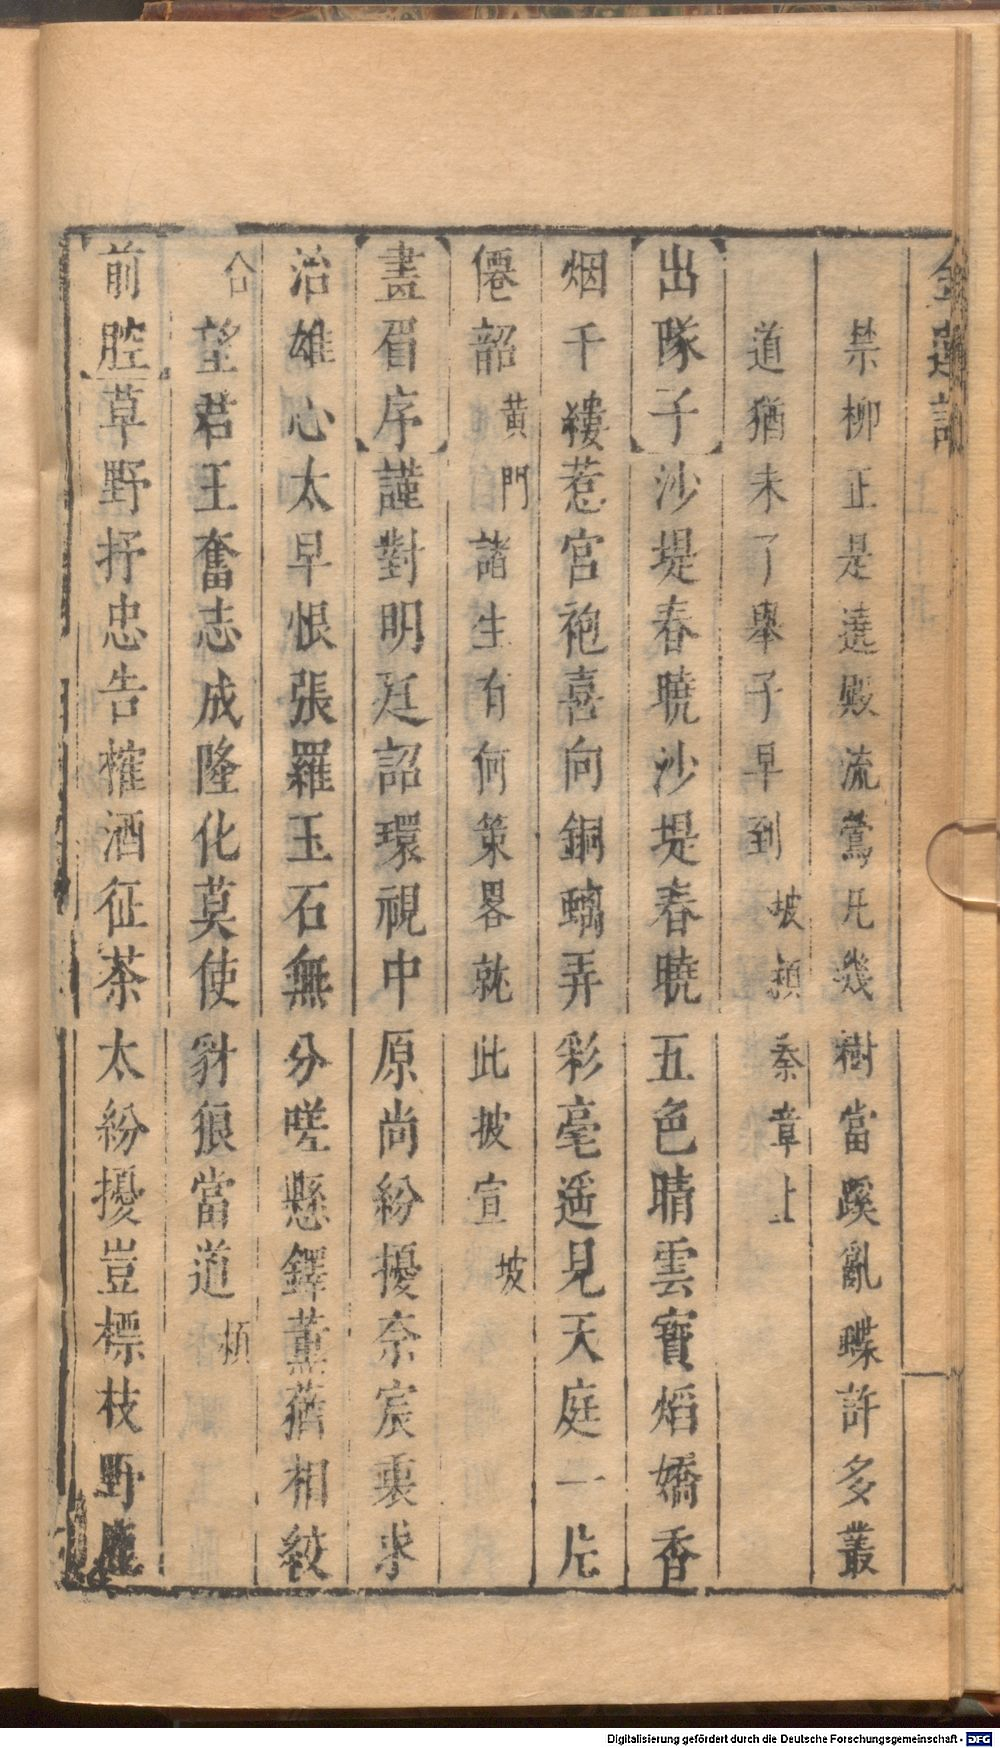 金蓮記
禁柳正是遶殿流鶯凡幾樹當蹊亂蝶許多叢
道猶未了舉子早到坡潁秦章上
出隊子沙堤春曉沙堤春曉五色晴雲寶熖嬌香
烟千縷惹宮袍喜向銅螭弄彩毫遥見天庭一片
僊韶黄門諸生有何策畧就此披宣坡
畫眉序謹對明廷詔環視中原尚紛擾奈宸衷求
治雄心太早恨張羅玉石無分嗟懸鐸薰蕕相絞
合望君王奮志成隆化莫使豺狼當道潁
前腔草野抒忠告榷酒征茶太紛擾豈標枝野鹿
Digitalisierung gefördert durch die Deutsche Forschungsgemeinschaft - DFG